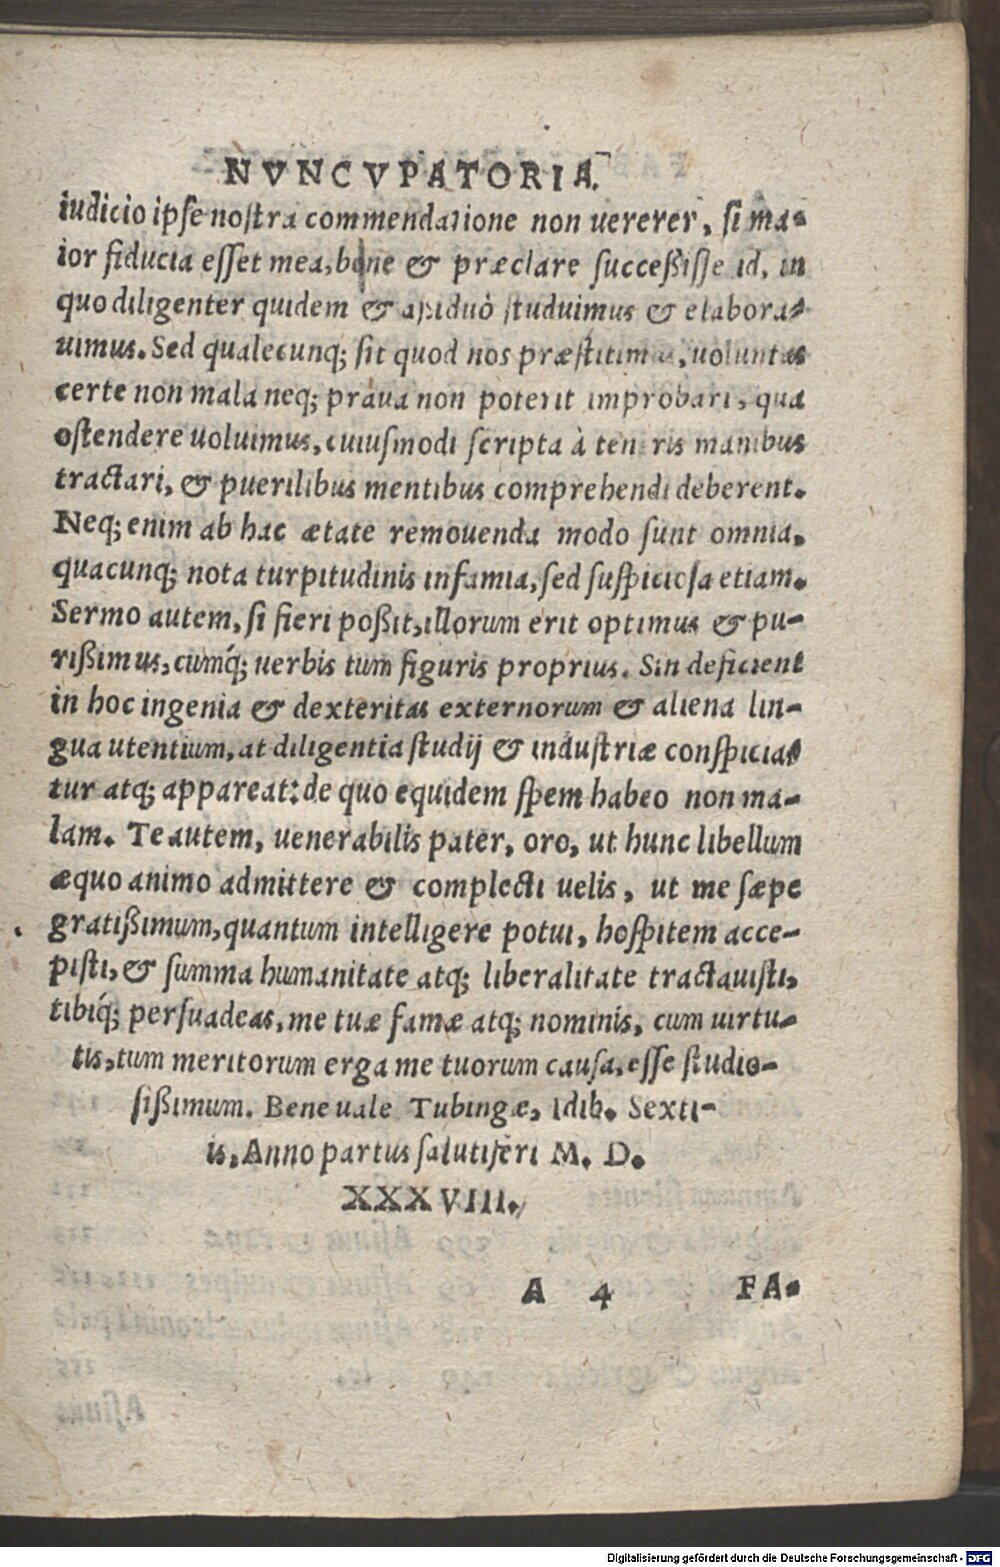 NVNCVPATORIA.
iudicio ipse nostra commendatione non uererer, si ma-
ior fiducia esset mea, bene & præclare succeßisse id, in
quo diligenter quidem & aßiduò studuimus & elabora-
uimus. Sed qualecunq; sit quod nos præstitimus, uoluntas
certe non mala neq; praua non poterit improbari, qua
ostendere uoluimus, cuiusmodi scripta à teneris manibus
tractari, & puerilibus mentibus comprehendi deberent.
Neq; enim ab hac ætate remouenda modo sunt omnia,
quacunq; nota turpitudinis infamia, sed suspiciosa etiam.
Sermo autem, si fieri poßit, illorum erit optimus & pu-
rißimus, cumq́; uerbis tum figuris proprius. Sin deficient
in hoc ingenia & dexteritas externorum & aliena lin-
gua utentium, at diligentia studij & industriæ conspicia-
tur atq; appareat: de quo equidem spem habeo non ma-
lam. Te autem, uenerabilis pater, oro, ut hunc libellum
æquo animo admittere & complecti uelis, ut me sæpe
gratißimum, quantum intelligere potui, hospitem acce-
pisti, & summa humanitate atq; liberalitate tractauisti,
tibiq́; persuadeas, me tuæ famæ atq; nominis, cum uirtu-
tis, tum meritorum erga me tuorum causa, esse studio-
sißimum. Bene uale Tubingæ, Idib. Sexti-
is, Anno partus salutiferi M. D.
XXXVIII.
A 4 FA-
Digitalisierung gefördert durch die Deutsche Forschungsgemeinschaft - DFG